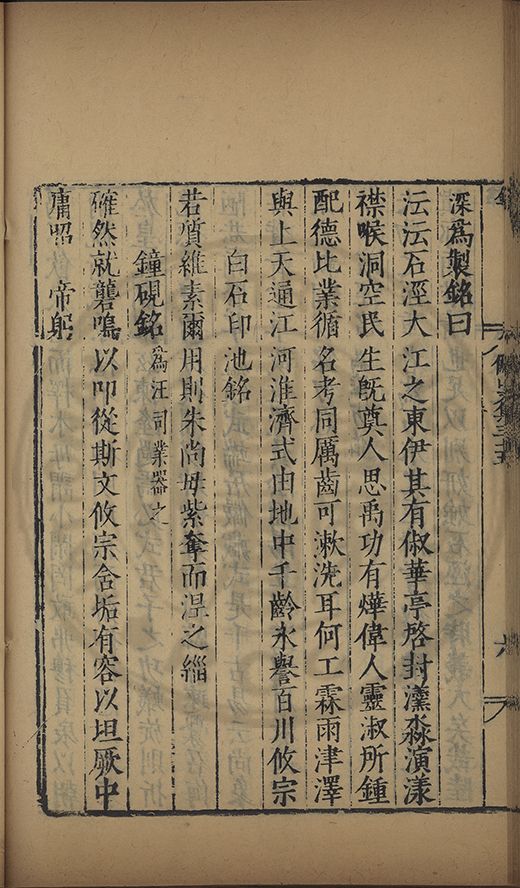 深為製銘曰
沄沄石涇大江之東伊其有俶華亭啓封瀿淼演漾
襟喉洞空民生旣奠人思禹功有燁偉人靈淑所鍾
配德比業循名考同厲齒可漱洗耳何工霖雨津澤
與上天通江河淮濟式由地中千齡永譽百川攸宗
白石印池銘
若質維素爾用則朱尚毋紫奪而涅之緇
鐘硯銘為汪司業器之
確然就礱鳴以叩從斯文攸宗含垢有容以坦厥中
庸昭 帝躬